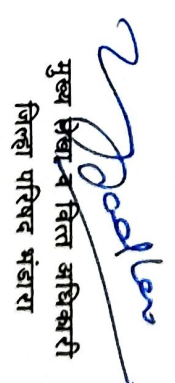 मुख्य लेखा व वित्त अधिकारी
जिल्हा परिषद भंडारा